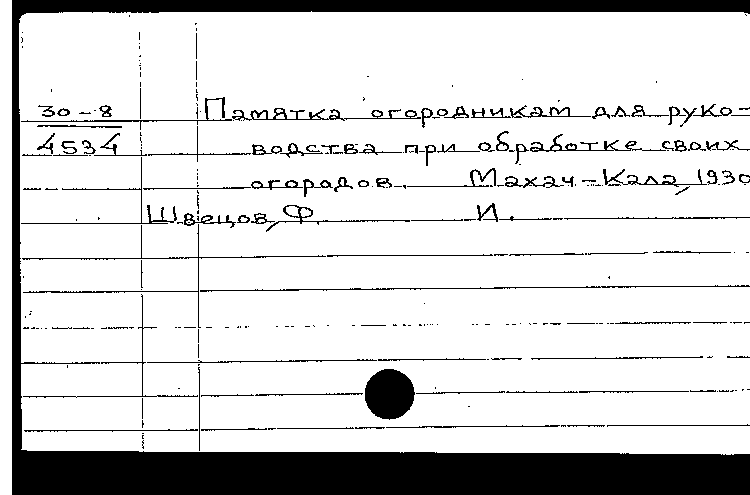 30-8
4534
Памятка огородникам для руко-
водства при обработке своих
огородов. Махач-Кала, 1930
Швецов, Ф. И.